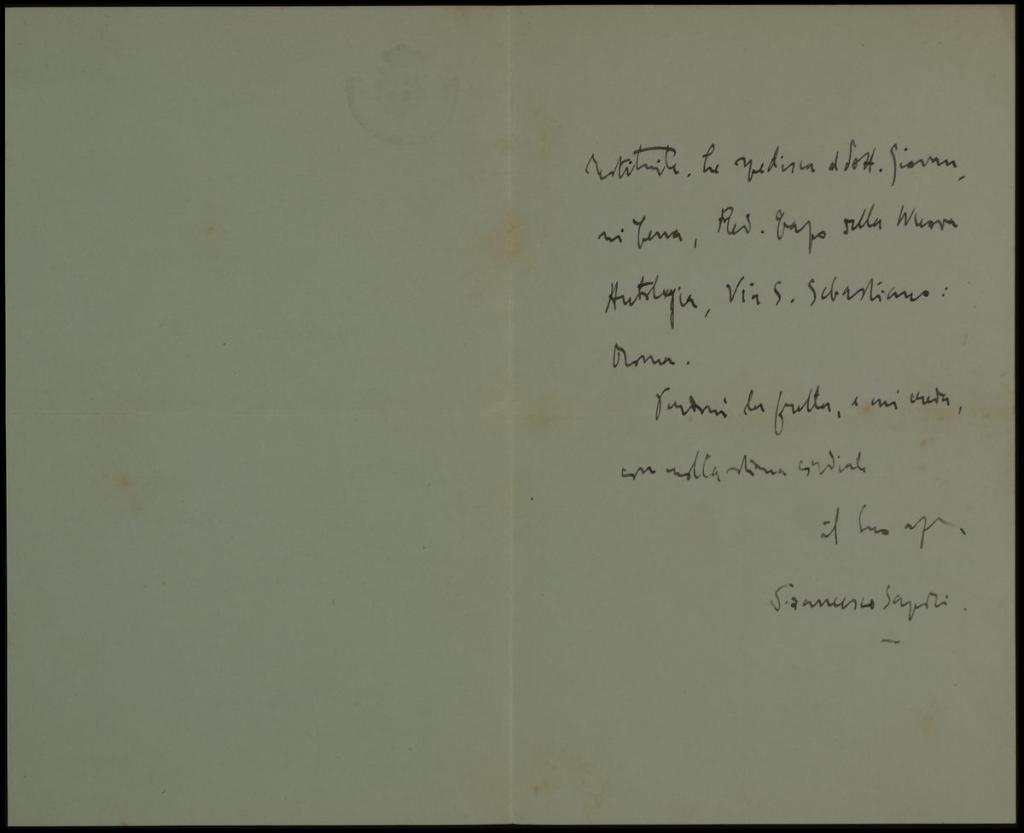 restituite. Le spedisca al Dott. Giovan,
ni Cena, Red. Capo della Nuova
Antologia, Via S. Sebastiano:
Roma.
Perdoni la fretta, e mi creda,
con molta stima cordiale
il Suo aff.
Francesco Sapori.